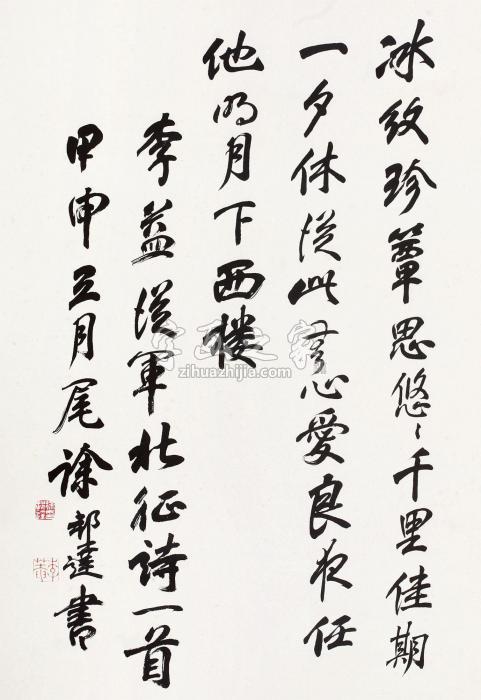 冰紋珍簟思悠〻千里佳期
一夕休從此無心愛良夜任
他明月下西樓
李益從軍北征詩一首
甲申月尾徐邦達書
字画之家
zihuazhijia.com